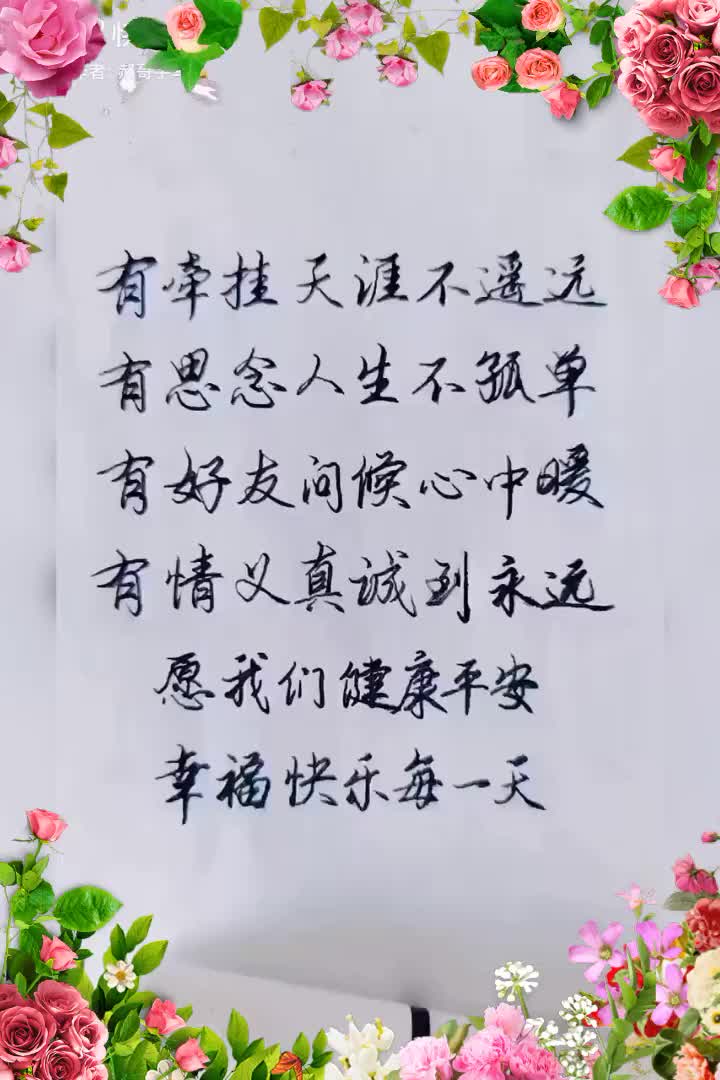 有牵挂天涯不遥远
有思念人生不孤单
有好友问候心中暖
有情义真诚到永远
愿我们健康平安
幸福快乐每一天